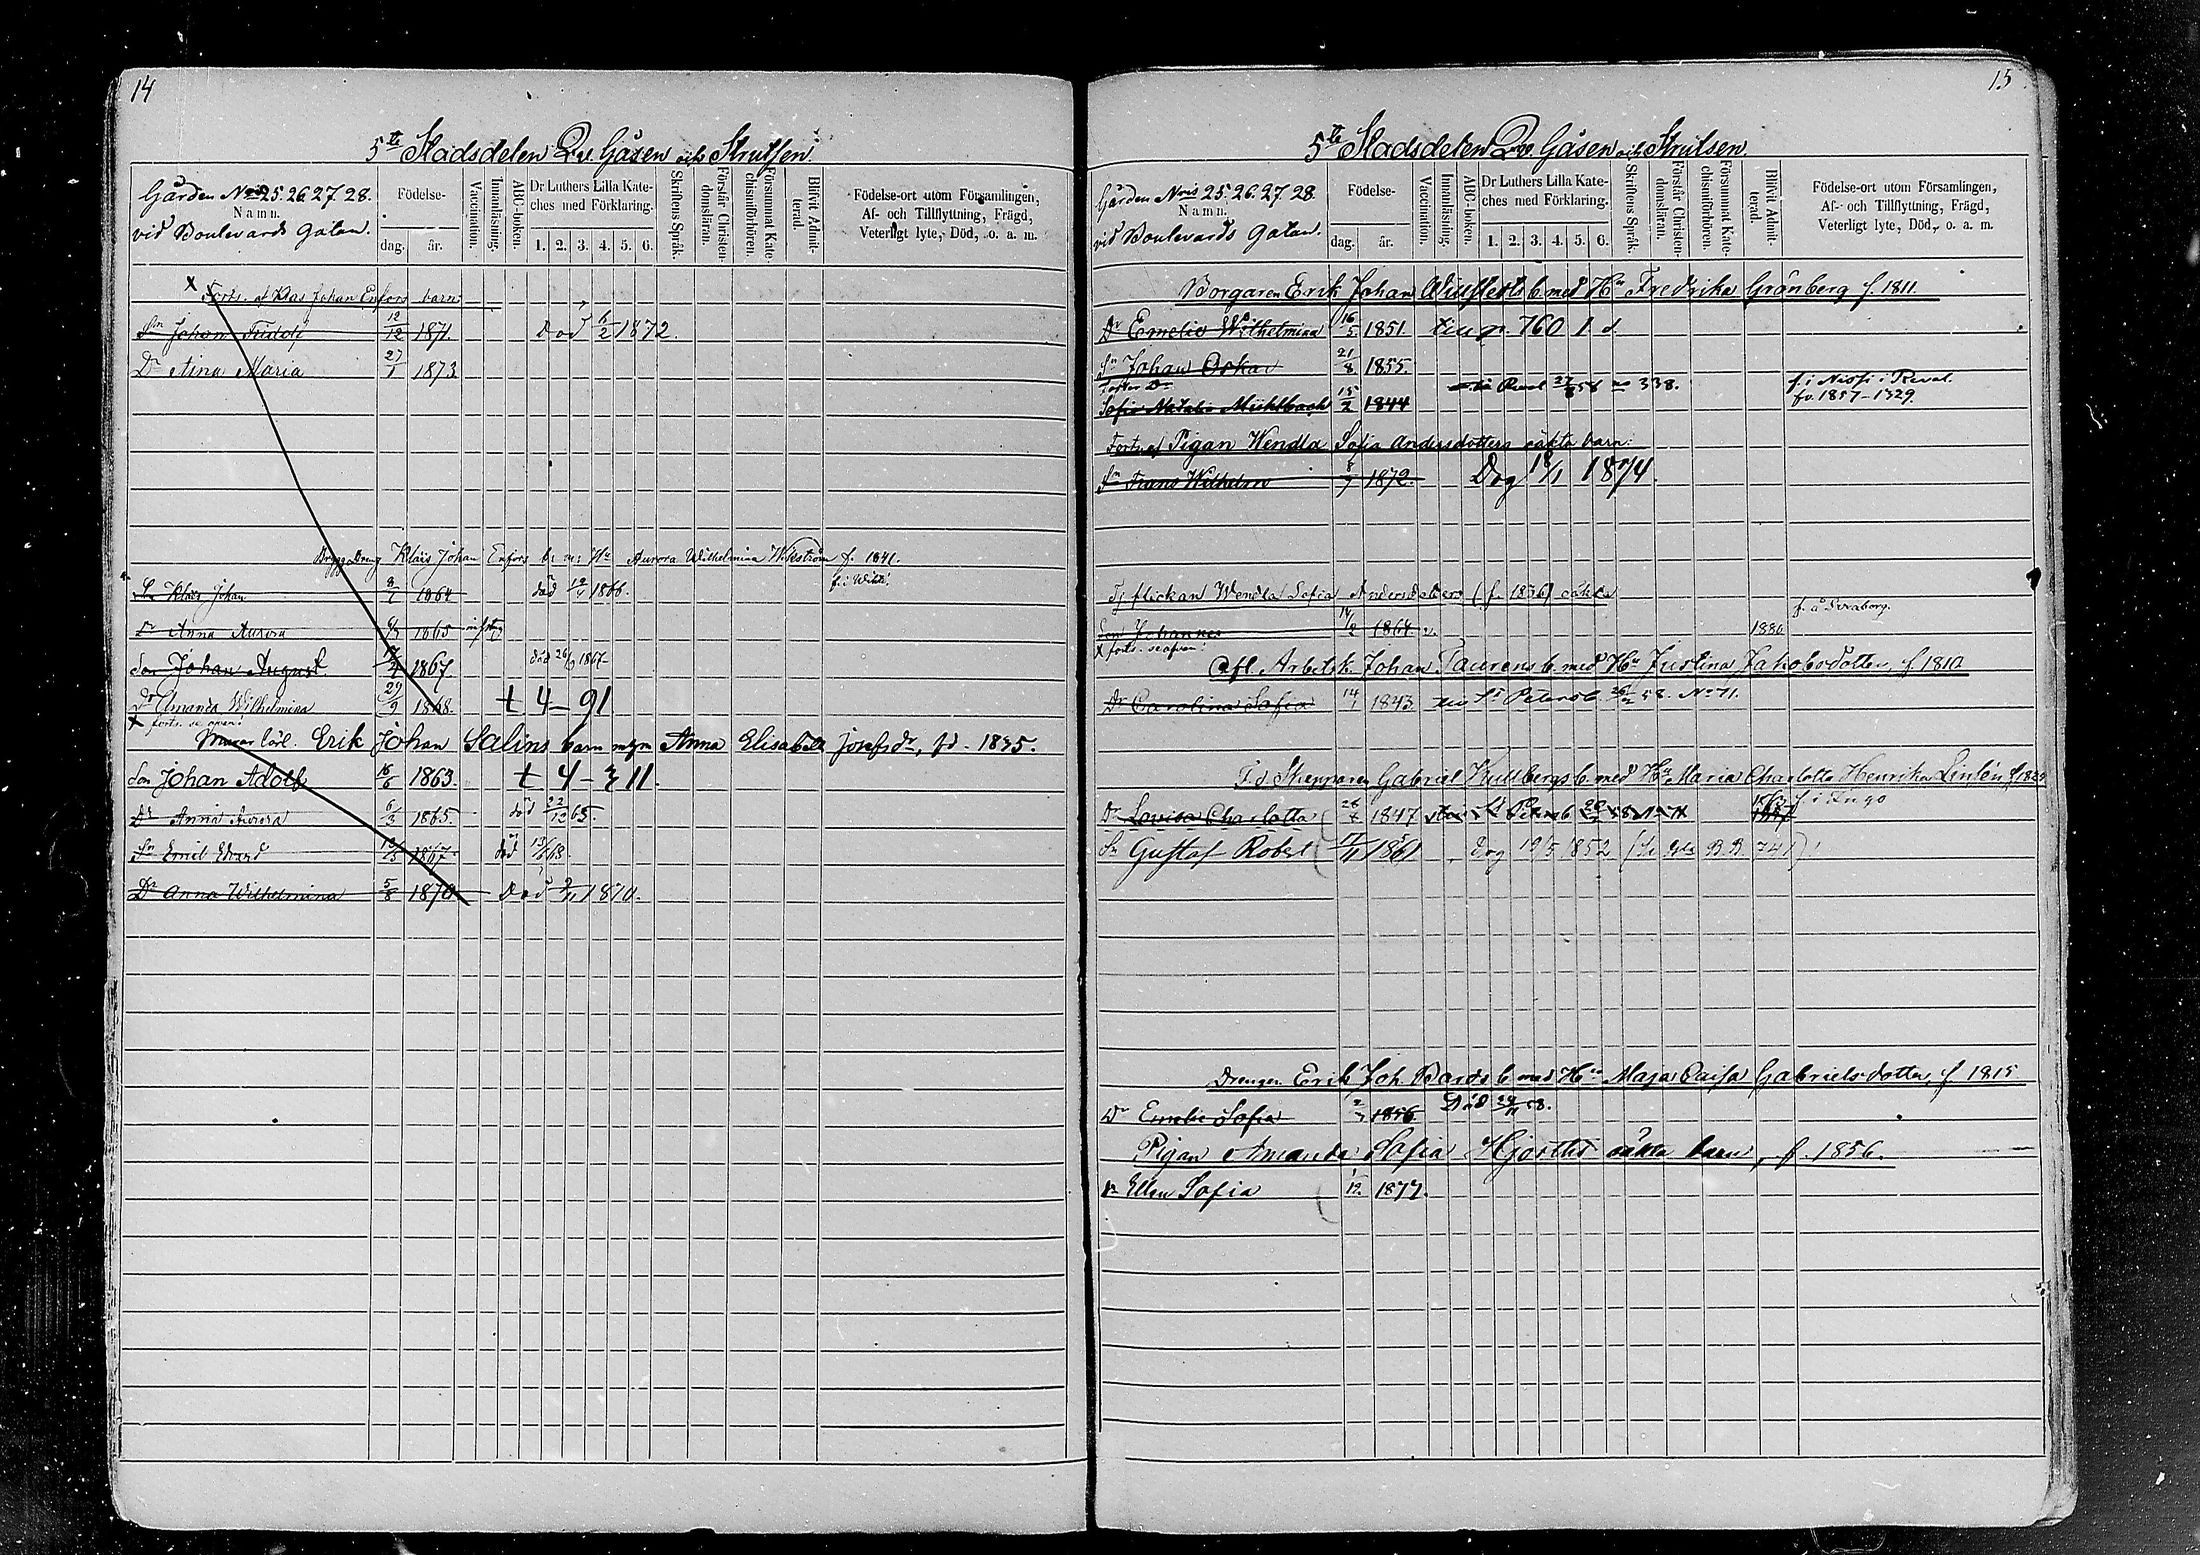 14
5te Stadsdelen Qv. Gåsen och Strutsen.
Gården Nris 25. 26. 27. 28.
Namn.
vid Boulevards Gatan.
Födelse-
dag. år.
Vaccination.
Innanläsning.
ABC-boken.
Dr Luthers Lilla Kate-
ches med Förklaring.
1. 2. 3. 4. 5. 6.
Skriftens Språk.
Förstår Christen-
domsläran.
Försummat Kate-
chismiförhören.
Blifvit Admit-
terad.
Födelse-ort utom Församlingen,
Af- och Tillflyttning, Frägd,
Veterligt lyte, Död, o. a. m.
Forts. af Klas Johan Enfors barn:
Sn Johan Fridolf 12/12 1871. Död 6/2 1872.
Dr Aina Maria 27/1 1873
Dreng Klaës Johan Enfors b. m. Hu Aurora Wilhelmina Wikström f. 1841.
Sn Klaës Johan 1864 död 1866.
Dr Anna Aurora 1865
Son Johan August 1867 död 26/9 1867
Dr Amanda Wilhelmina 29/9 1868. † 4 — 91
x forts. se ofvan!
Erik Johan Salins barn m. Anna Elisabeth Josefsdr, fd. 1835.
Son Johan Adolf 16/6 1863. † 4 — 11.
Dr Anna Aurora 6/3 1865. död 22/12 65.
Sn Emil Edvard 1867 död 68.
Dr Anna Wilhelmina 5/8 1870 Död 1870.
15
5te Stadsdelen Qv. Gåsen och Strutsen.
Gården Nris 25. 26. 27. 28.
Namn.
vid Boulevards Gatan.
Födelse-
dag. år.
Vaccination.
Innanläsning.
ABC-boken.
Dr Luthers Lilla Kate-
ches med Förklaring.
1. 2. 3. 4. 5. 6.
Skriftens Språk.
Förstår Christen-
domsläran.
Försummat Kate-
chismiförhören.
Blifvit Admit-
terad.
Födelse-ort utom Församlingen,
Af- och Tillflyttning, Frägd,
Veterligt lyte, Död, o. a. m.
Borgaren Erik Johan b. med Hu Fredrika Grönberg f. 1811.
Dr Emelie Wilhelmina 16/5 1851. 760 1. d.
Sn Johan Oskar 21/8 1855.
Foster Dr
Sofia Natalia Mühlbach 15/2 1844 Reval 58 no 338. f. i Nissi i Reval.
fv. 1857 - 1329.
Forts. af Pigan Wendla Sofia Andersdotters oäkta barn:
Sn Frans Wilhelm 8/7 1872. Dog 18/1 1874.
Tj flickan Wendla Sofia Andersdotters (f. 1836) oäkta
Son Johannes 14/2 1864 v. 1880 f. å Sveaborg.
x forts. se ofvan!
Afl. Arbetsk. Johan Taurens b. med Hu Justina Jakobsdotter, f. 1810
Dr Carolina Sofia 14/1 1843 St Petersb. 58. No 71.
F.d. Skepparen Gabriel Kullbergs b. med Hu Maria Charlotta Henrika Linlén f. 1829
Dr Lovisa Charlotta 1847 1863 f. i Ingo
Sn Gustaf Robert 1851 dog 19/5 1852 (Se Gla B.B. 741)
Drengen Erik Joh. Bards b. med Hu Maja Caisa Gabrielsdotter, f. 1815
Dr Emelie Sofia 1856 Död 58.
Pigan Amanda Sofia Hjorths oäkta barn, f. 1856.
Dr Ellen Sofia 1/12. 1877.